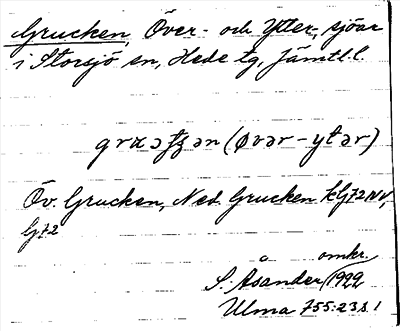 Grucken, Över- och Ytter-, sjöar
i Storsjö sn, Hede tg, Jämtl. l.
(øvər-ytər)
Öv. Grucken, Ned. Grucken klj72NV,
lj72
omkr.
S. Åsander/1922
Ulma 755:23 s. 1